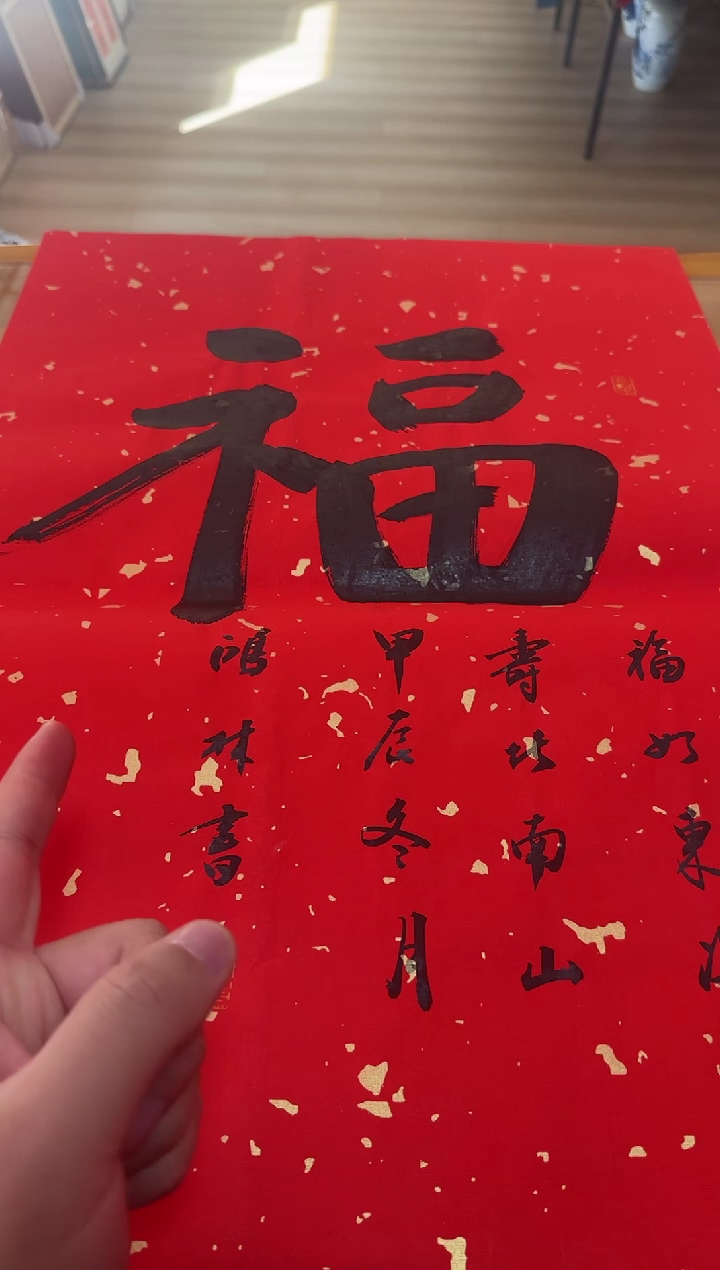 福
福如東
壽比南山
甲辰冬月
鴻林書